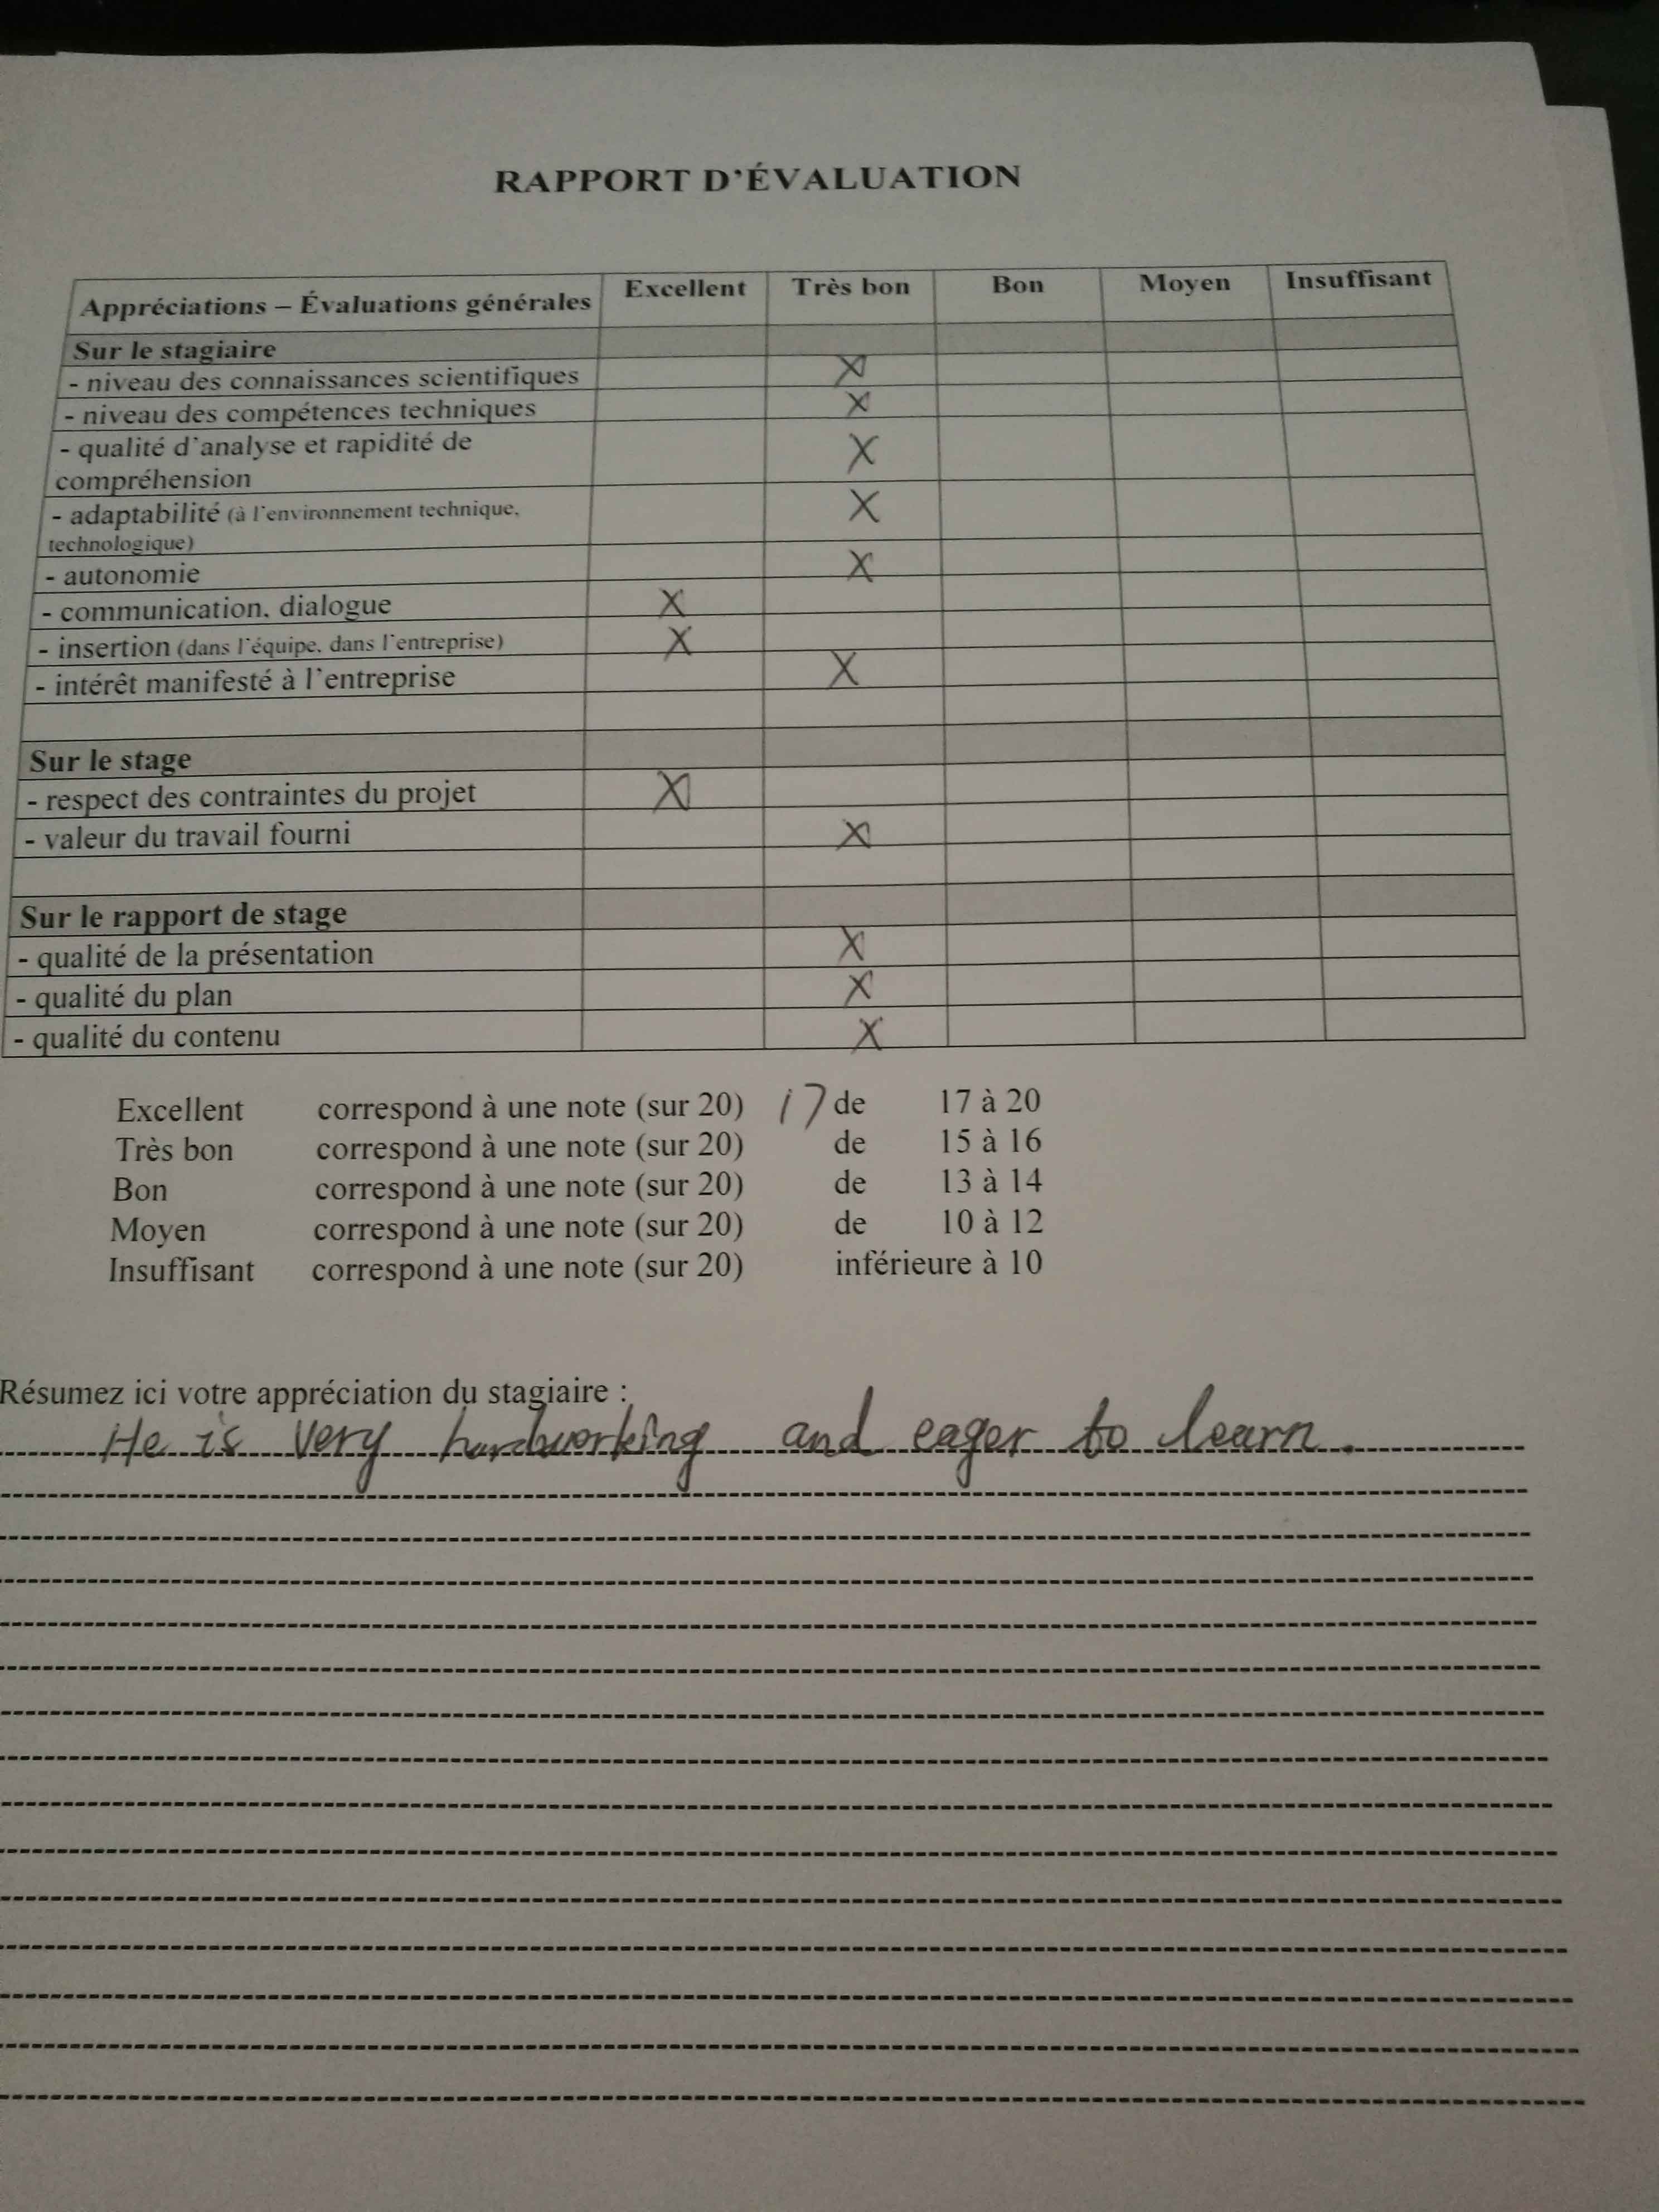 RAPPORT D'ÉVALUATION
Appréciations – Évaluations générales Excellent Très bon Bon Moyen Insuffisant
Sur le stagiaire
- niveau des connaissances scientifiques X
- niveau des compétences techniques X
- qualité d'analyse et rapidité de
compréhension X
- adaptabilité (à l'environnement technique,
technologique) X
- autonomie X
- communication, dialogue X
- insertion (dans l'équipe, dans l'entreprise) X
- intérêt manifesté à l'entreprise X
Sur le stage
- respect des contraintes du projet X
- valeur du travail fourni X
Sur le rapport de stage
- qualité de la présentation X
- qualité du plan X
- qualité du contenu X
Excellent correspond à une note (sur 20) 17 de 17 à 20
Très bon correspond à une note (sur 20) de 15 à 16
Bon correspond à une note (sur 20) de 13 à 14
Moyen correspond à une note (sur 20) de 10 à 12
Insuffisant correspond à une note (sur 20) inférieure à 10
Résumez ici votre appréciation du stagiaire :
He is very hardworking and eager to learn.